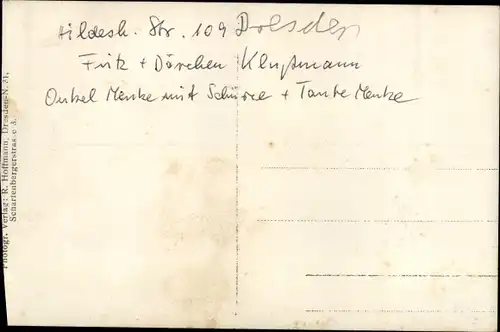 Hildesh. Str. 109 Dresden
Fritz + Dörchen Klußmann
Onkel Menke mit Schürze + Tante Menke
Photogr. Verlag: R. Hoffmann, Dresden-N. 31,
Scharfenbergerstrasse